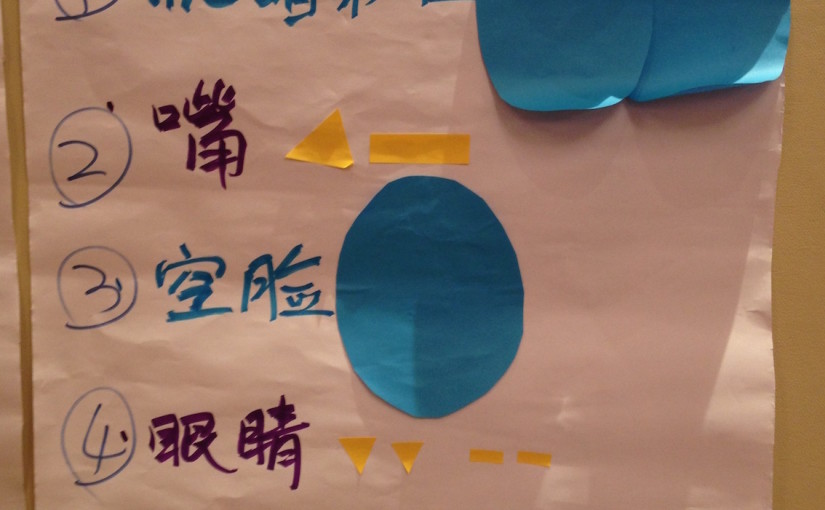 ② 嘴
③ 空脸
④ 眼睛